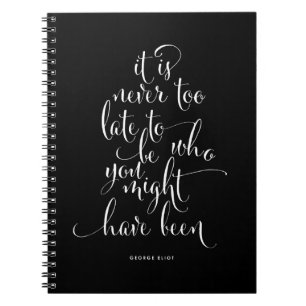 it is
never too
late to
be who
you
might
have been
GEORGE ELIOT